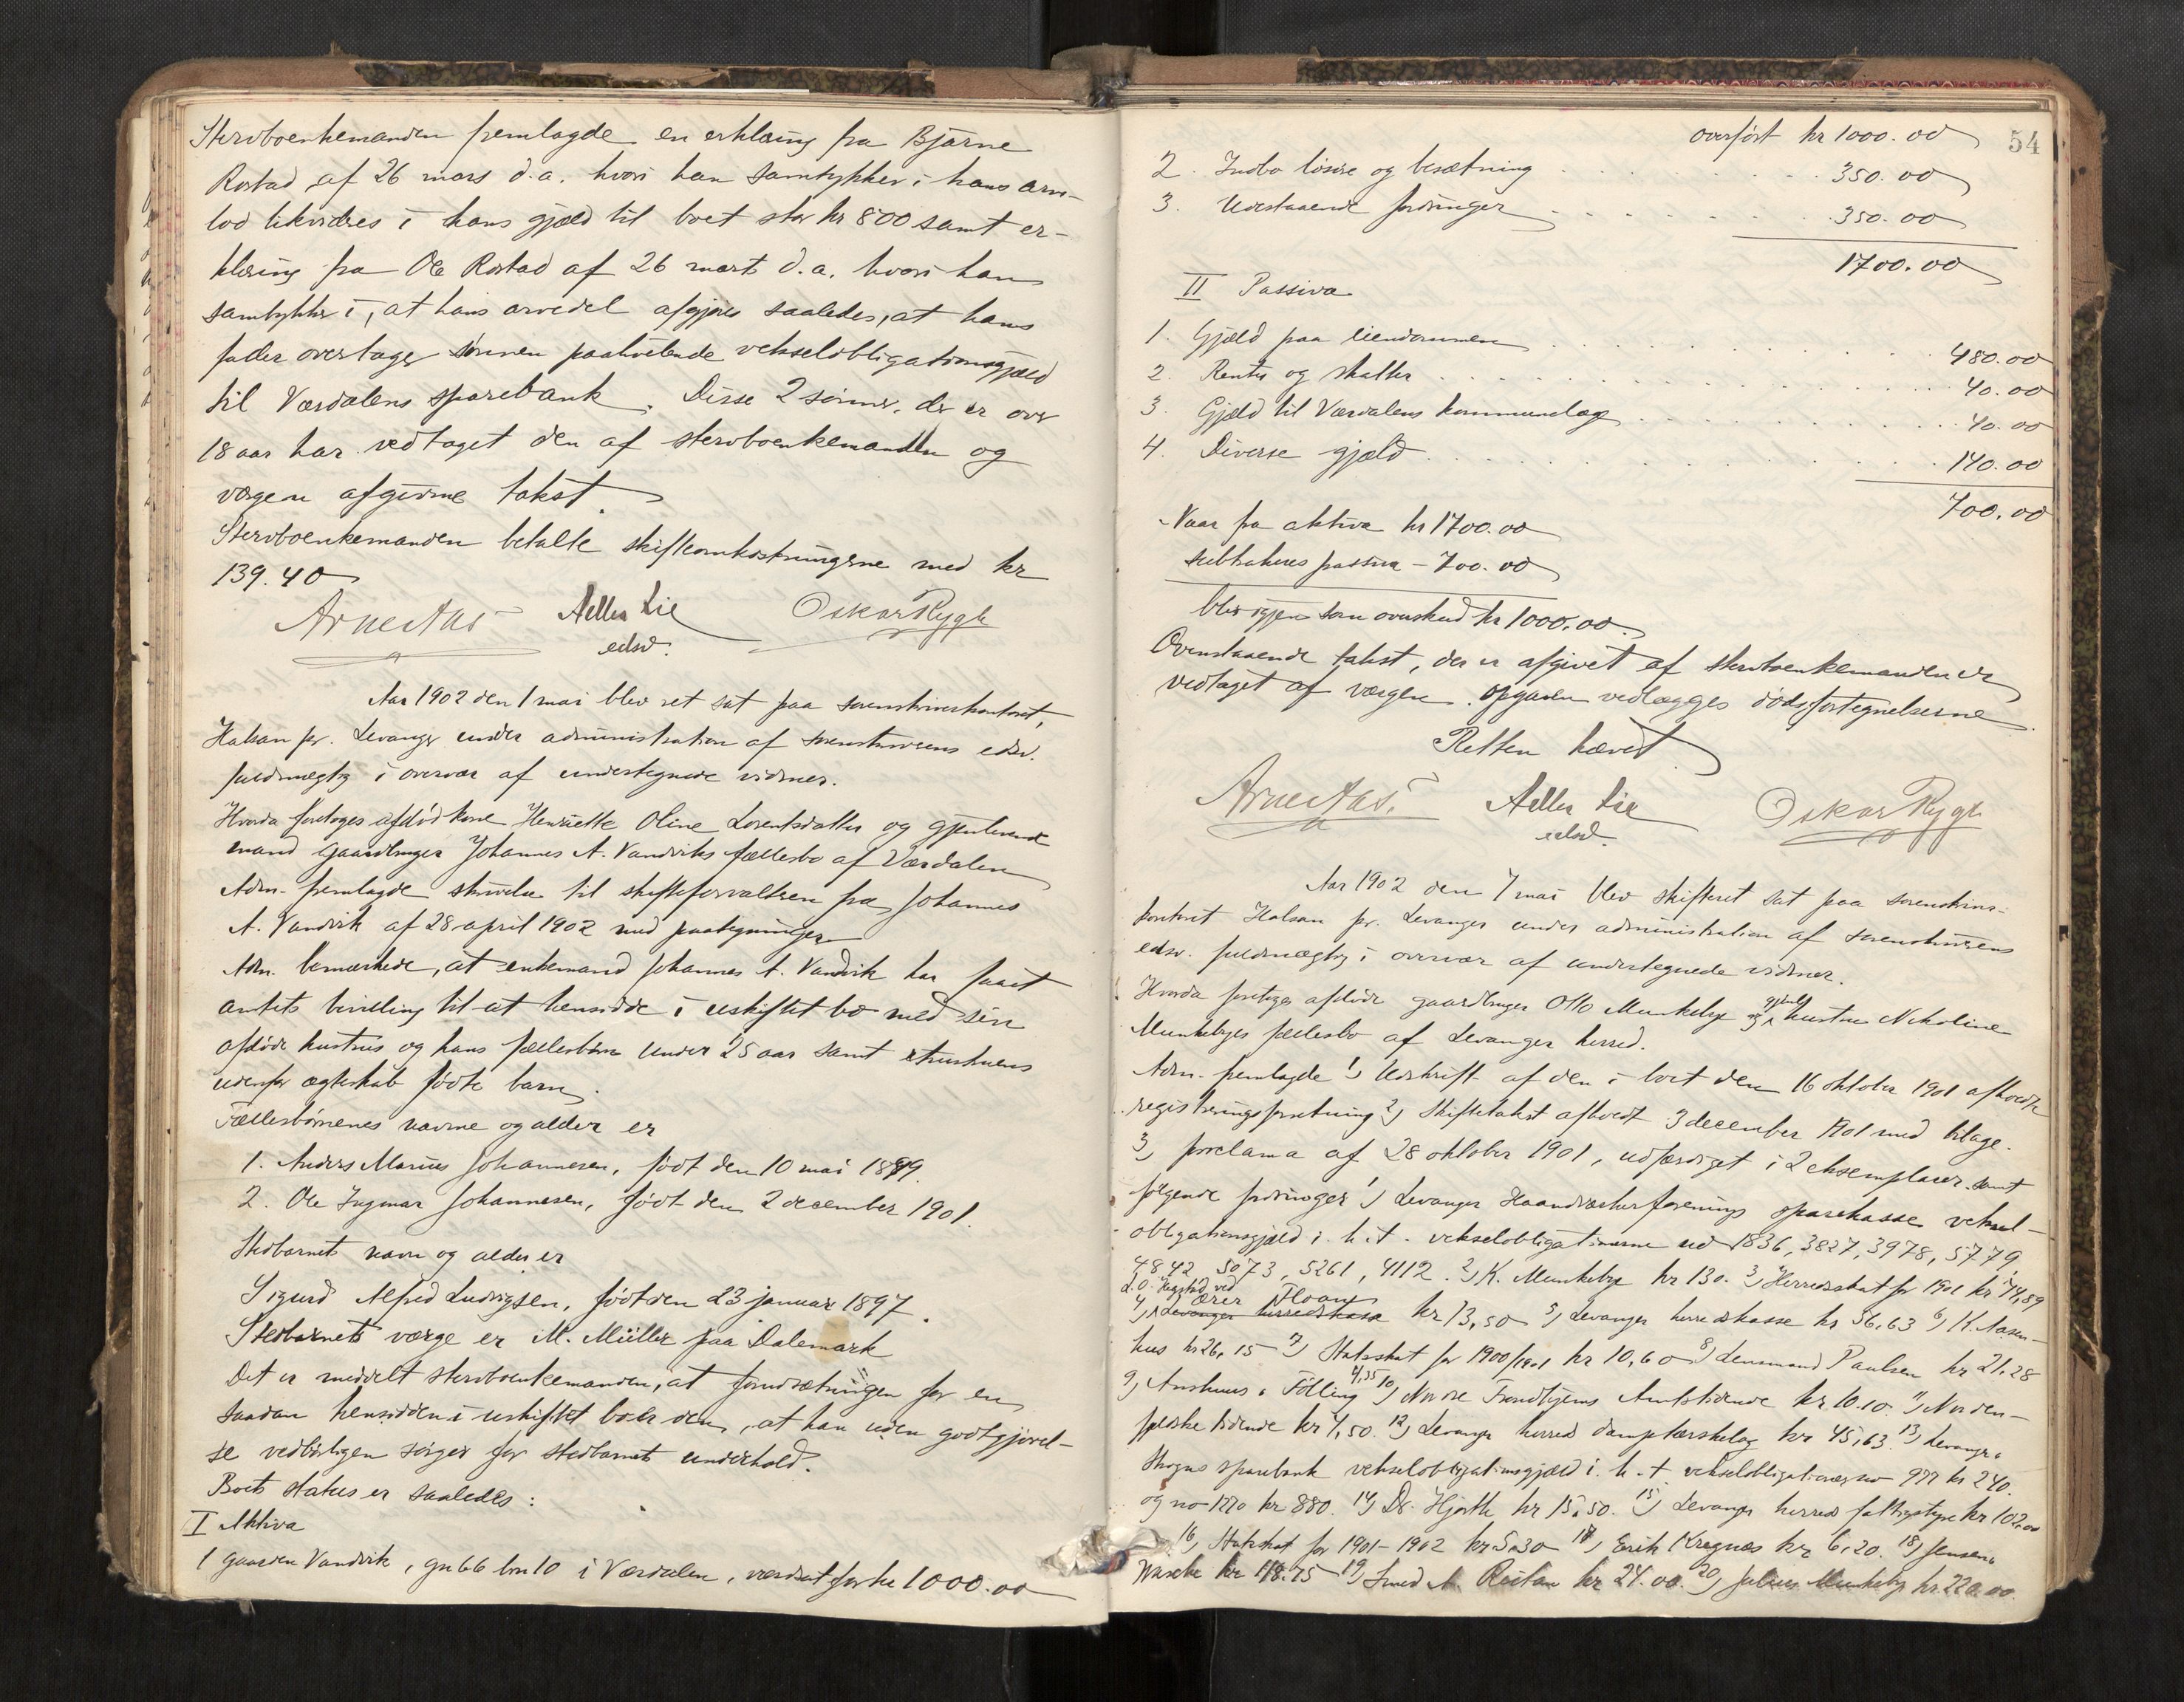 Stervboenkemanden fremlagde en erklæring fra Bjarne
Rostad af 26 mars d.a. hvori han samtykker i hans arve-
lod likvideres i hans gjæld til boet stor kr 800 samt er-
klæring fra Ole Rostad af 26 marts d.a. hvori han
samtykker i, at hans arvedel afgjøres saaledes, at hans
fader overtager sønnen paahvilende vekselobligationsgjæld
til Værdalens sparebank. Disse 2 sønner, der er over
18 aar har vedtaget den af stervboenkemanden og
vergen afgivne takst.
Stervboenkemanden betalte skifteomkostningerne med kr
139.40
Arne Aas Aeller Lie Oskar Rygh
edsv.
Aar 1902 den 1 mai blev ret sat paa sorenskriverkontoret,
Halsan pr. Levanger under administration af sorenskriverens edsv.
fuldmægtig i overvær af undertegnede vidner.
Hvorda foretoges afdød kone Henriette Oline Lorentsdatter og gjenlevende
mand gaardbruger Johannes A. Vandviks fællesbo af Værdalen
Adm. fremlagde skrivelse til skifteforvalteren fra Johannes
A. Vandvik af 28 april 1902 med paategninger
Adm. bemærkede, at enkemand Johannes A. Vandvik har faaet
amtets bevilling til at hensidde i uskiftet bo med sin
afdøde hustrus og hans fællesbørn under 25 aar samt hustruens
udenfor ægteskab fødte barn.
Fællesbørnenes navne og alder er
1. Anders Marius Johannesen, født den 10 mai 1899.
2. Ole Ingmar Johannesen, født den 2 december 1901.
Stedbarnets navn og alder er
Sigurd Alfred Ludvigsen, født den 23 januar 1897.
Stedbarnets værge er M. Müller paa Dalemark
Det er meddelt stervboenkemanden, at forudsætningen for en
saadan hensidden i uskiftet bo er den, at han uden godtgjørel-
se vedbørligen sørger for stedbarnets underhold.
Boets status er saaledes:
I Aktiva
1 gaarden Vandvik, gn 66 bn 10 i Værdalen, værdsat for kr 1000.00
54
overført kr 1000.00
2. Indbo løsøre og besætning 350.00
3. Udestaaende fordringer 350.00
1700.00
II Passiva
1. Gjæld paa eiendommen 480.00
2. Renter og skatter 40.00
3. Gjæld til Værdalens kommunelag 40.00
4. Diverse gjæld 140.00
700.00
Naar fra aktiva kr 1700.00
subtraheres passiva - 700.00
blir igjen som overskud kr 1000.00.
Ovenstaaende takst, der er afgivet af stervboenkemanden er
vedtaget af værgen. Opgaven vedlægges dødsfortegnelserne.
Retten hævet
Arne Aas. Aeller Lie Oskar Rygh
edsv.
Aar 1902 den 7 mai blev skifteret sat paa sorenskriver-
kontoret Halsan pr. Levanger under administration af sorenskriverens
edsv. fuldmægtig i overvær af undertegnede vidner.
Hvorda foretoges afdøde gaardbruger Otto Munkeby og gjenl. hustru Nikoline
Munkebyes fællesbo af Levanger herred.
Adm. fremlagde 1) Udskrift af den i boet den 16 oktober 1901 afholdte
registreringsforretning 2) Skiftetakst afholdt 3 december 1901 med bilage.
3) proclama af 28 oktober 1901, udfærdiget i 2 eksemplarer samt
følgende fordringer 1) Levanger Haandværkerforenings sparekasse veksel-
obligationsgjæld i h.t. vekselobligationerne no 1836, 3827, 3978, 5779,
4842, 5073, 5261, 4112. 2) K. Munkeby kr 130. 3) Herredsskat for 1901 kr 74,89
L.O. ved Floan
4) Levanger herredskasse kr 13,50 5) Levanger herredskasse kr 56,63 6) K. Aasen-
hus kr 26,15 7) Statsskat for 1900/1901 kr 10,60 8) Lensmand Paulsen kr 21,28
9) Aurhuus & Fölling 4,35 10) Nordre Trondhjems Amtstidende kr 10.10. 11) Norden-
fjeldske tidende kr 4,50. 12) Levanger herreds damptærskelag kr 45,63. 13) Levanger &
Skogns sparebank vekselobligationsgjæld i h.t. vekselobligation no 977 kr 240.
og no 1270 kr 880. 14) Dr. Hjorth kr 15,50. 15) Levanger herreds fattigstyre kr 102,00
16) Statsskat for 1901-1902 kr 5.30 17) Erik Kregnæs kr 6,20. 18) Jensen &
kr 118.75 19) Smed A. Reitan kr 24.00. 20) Julius Munkeby kr. 220.00.